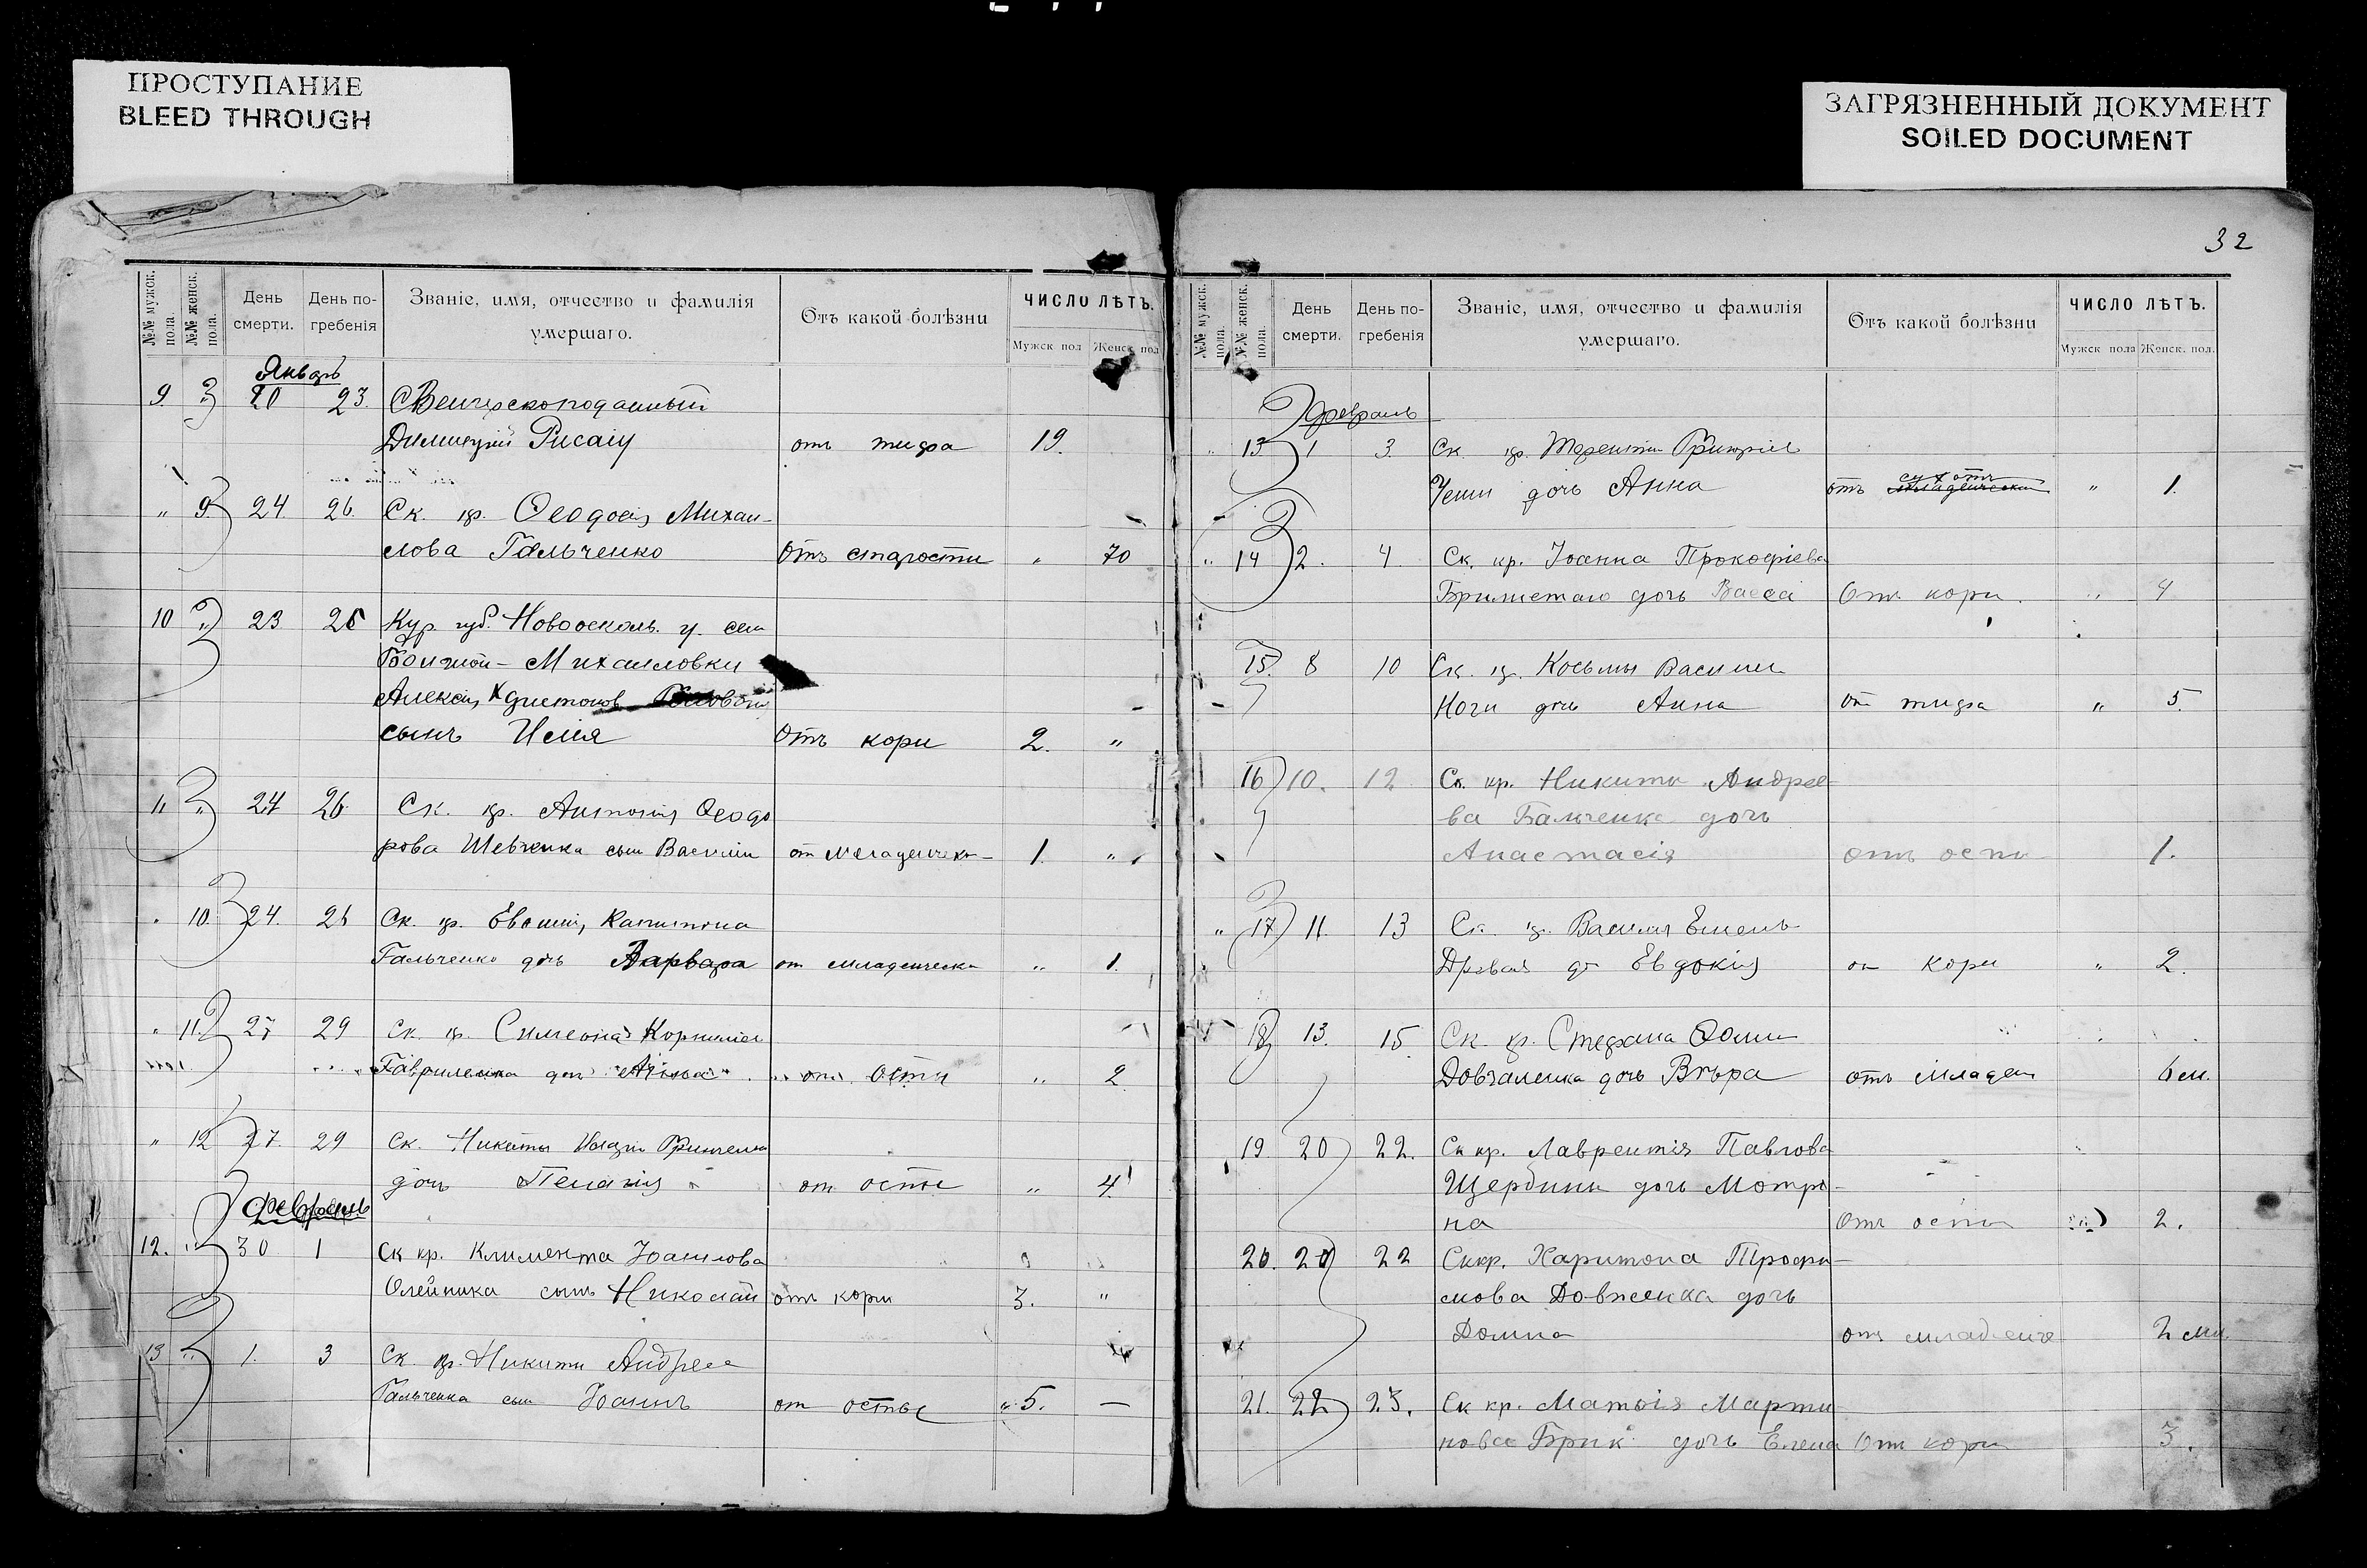 ПРОСТУПАНИЕ
BLEED THROUGH
ЗАГРЯЗНЕННЫЙ ДОКУМЕНТ
SOILED DOCUMENT
№№ мужск. пола.
№№ женск. пола.
День смерти.
День погребенія
Званіе, имя, отчество и фамилія умершаго.
Отъ какой болѣзни
ЧИСЛО ЛѢТЪ.
Мужск пол
Женск. пол
Январь
9. " 20 23.
от тифа 19.
" 9. 24. 26. Ск. кр. Ѳеодосія Михаи-
лова Гальченко Отъ старости " 70
10 " 23 25 Кур. губ. Новооскол. у. сел
Михаиловки
Алексія
сынъ Илія Отъ кори 2. "
11 " 24 26 Ск. кр. Антонія Ѳеодо
рова Шевченка сын Василій от младенческ- 1. "
" 10. 24. 26 Ск. кр. Евѳимія Капитона
Гальченко дочь Варвара от младенческ " 1.
" 11. 27 29 Ск. кр. Симеона Корнилія
Гавриленка доч Анна от оспы " 2.
" 12 27. 29 Ск. Никиты
дочь Пелагія от оспы " 4
Февраль
12. " 30 1 Ск кр. Климента Іоакимова
Олейника сынъ Николай отъ кори 3. "
13 " 1. 3 Ск. кр. Никиты Андреев
Гальченка сын Іоаннъ от оспы " 5. —
32
№№ мужск. пола.
№№ женск. пола.
День смерти.
День погребенія
Званіе, имя, отчество и фамилія умершаго.
Отъ какой болѣзни
ЧИСЛО ЛѢТЪ.
Мужск пола
Женск. пол.
Февраль
" 13 1 3. Ск. кр. Терентія Григоріев
дочь Анна отъ " 1.
" 14 2. 4. Ск. кр. Іоанна Прокофіева
дочь Васса Отъ кори. " 4
15. 8 10 Ск. кр. Косьмы Василія
Ноги дочь Анна от тифа " 5.
16 10. 12 Ск. кр. Никиты Андрее-
ва Гальченка дочь
Анастасія отъ оспы 1.
" 17 11. 13 Ск. кр. Василія Емель
до Евдокія от кори " 2.
18 13. 15. Ск. кр. Стефана Ѳомы
Довгаленка дочь Вѣра отъ младен 6 м.
19. 20 22. Ск кр. Лаврентія Павлова
Щербины дочь Мотро-
на Отъ оспы 2.
20. 20 22 Ск кр. Харитона Трофи-
мова Довженка дочь
Домна отъ младенче 2 мц
21. 22 23. Ск кр. Матѳія Марти
нова Брик дочь Елена Отъ кори 3.